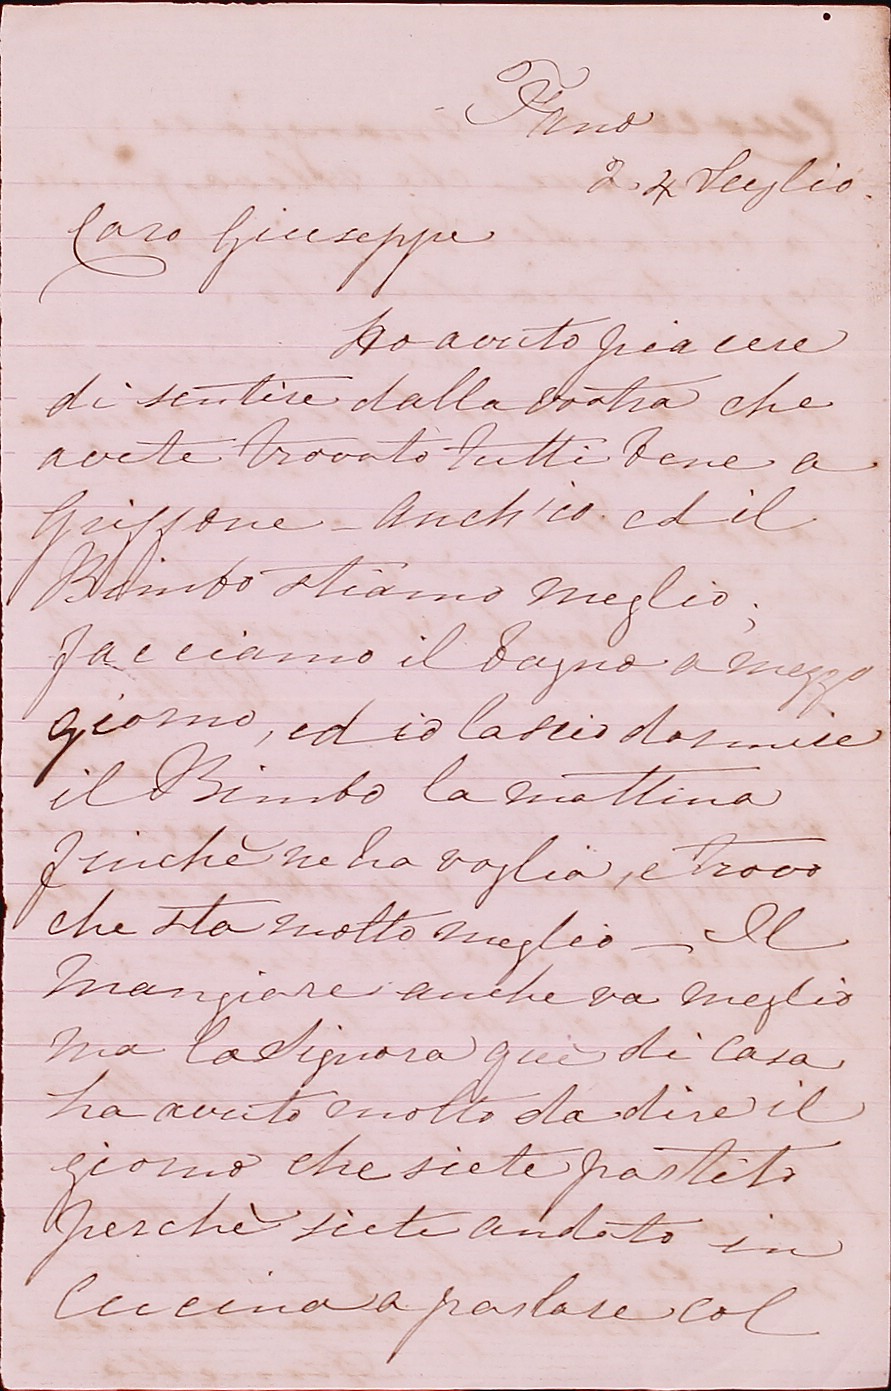 Fano
24 Luglio
Caro Giuseppe
Ho avuto piacere
di sentire dalla vostra che
avete trovato tutti bene a
Griffone - Anch'io ed il
Bimbo stiamo meglio;
facciamo il bagno a mezzo
giorno, ed io lascio dormire
il Bimbo la mattina
finchè ne ha voglia, e trovo
che sta molto meglio - Il
mangiare anche va meglio
ma la Signora quì di casa
ha avuto molto da dire il
giorno che siete partito
perchè siete andato in
cucina a parlare col